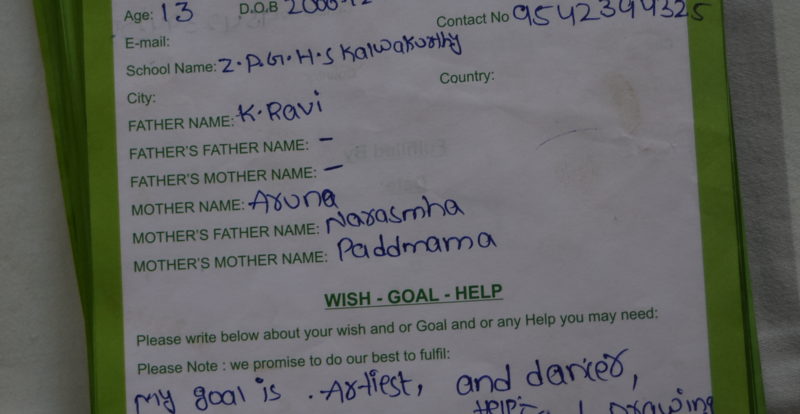 Age: 13 D.O.B 2006-12 Contact No 9542394325
E-mail:
School Name: Z.P.G.H.S Kalwakurthy
City: Country:
FATHER NAME: K.Ravi
FATHER'S FATHER NAME: –
FATHER'S MOTHER NAME: –
MOTHER NAME: Aruna
MOTHER'S FATHER NAME: Narasmha
MOTHER'S MOTHER NAME: Paddmama
WISH - GOAL - HELP
Please write below about your wish and or Goal and or any Help you may need:
Please Note : we promise to do our best to fulfil:
My goal is . Artiest, and dancer,
HELP:- Drawing